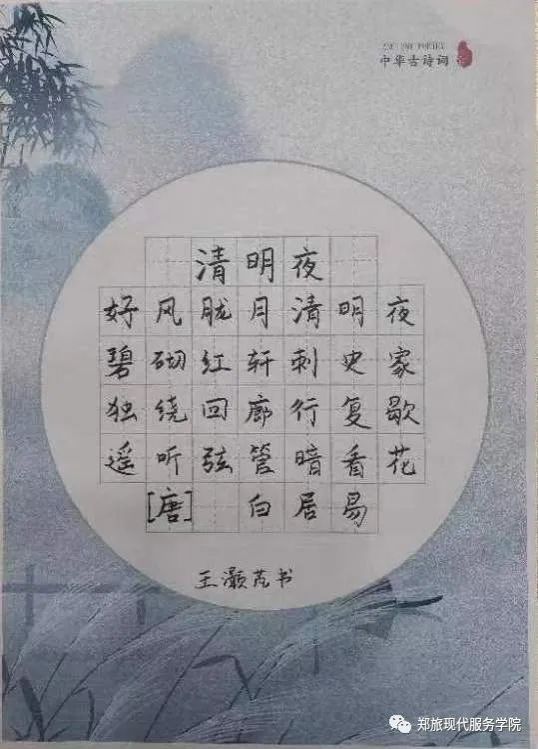 中华古诗词
清明夜
好风胧月清明夜
碧砌红轩刺史家
独绕回廊行复歇
遥听弦管暗看花
[唐] 白居易
王灏 书
郑旅现代服务学院